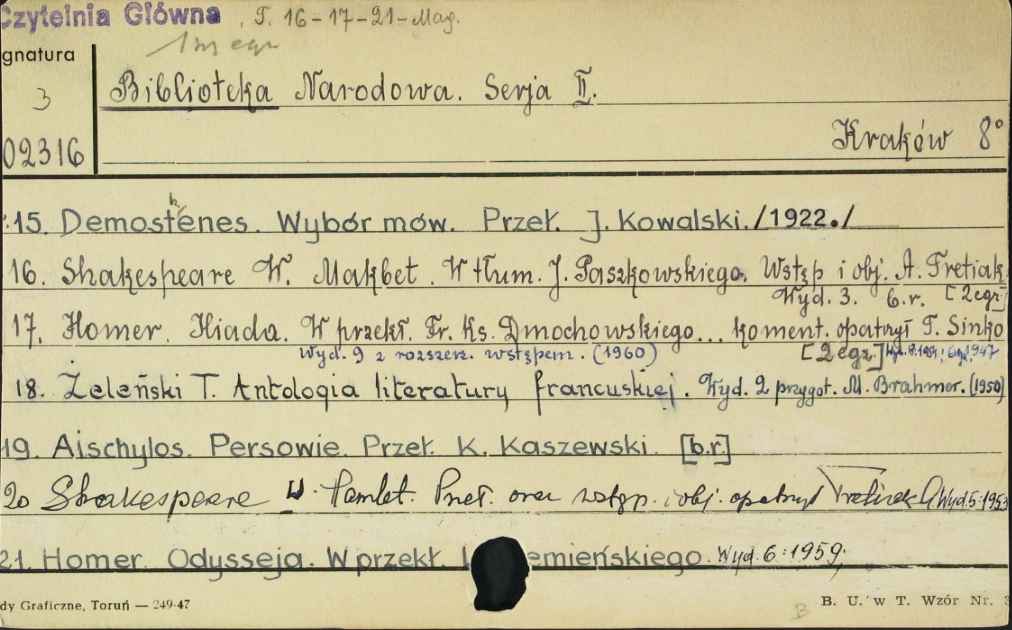 Czytelnia Główna, T. 16-17-21-Mag.
1 m egz
gnatura
3
Biblioteka Narodowa. Serja II.
02316
Kraków 8°
15. Demosthenes. Wybór mów. Przeł. J. Kowalski. /1922./
16. Shakespeare W. Makbet. W tłum. J. Paszkowskiego. Wstęp i obj. A. Tretiak
Wyd. 3. b.r. [2egz]
17. Homer. Iliada. W przekł. Fr. Ks. Dmochowskiego... koment. opatrzył T. Sinko
Wyd. 9 z rozszerz. wstępem. (1960) [2 egz.]
18. Żeleński T. Antologia literatury francuskiej. Wyd. 2 przygot. M. Brahmer. (1950)
19. Aischylos. Persowie. Przeł. K. Kaszewski. [b.r.]
20 Shakespeare W. Hamlet. Przeł. oraz wstęp. i obj. opatrzył Tretiak A. Wyd. 5. 1953
21. Homer. Odysseja. W przekł. emieńskiego. Wyd. 6. 1959;
dy Graficzne, Toruń — 249-47
B. U. w T. Wzór Nr. 3
B